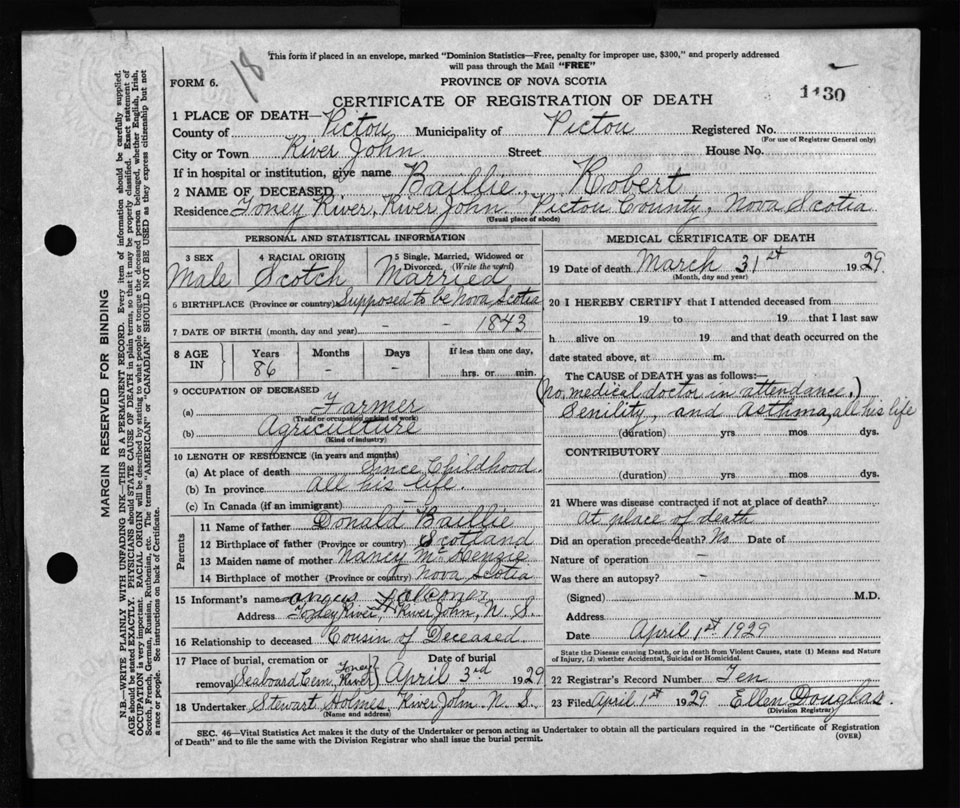 This form if placed in an envelope, marked "Dominion Statistics—Free, penalty for improper use, $300," and properly addressed
will pass through the Mail "FREE"
18
FORM 6.
PROVINCE OF NOVA SCOTIA
CERTIFICATE OF REGISTRATION OF DEATH
1130
1 PLACE OF DEATH—
County of Pictou Municipality of Pictou Registered No.
(For use of Registrar General only)
City or Town River John Street House No.
If in hospital or institution, give name
2 NAME OF DECEASED Baillie, Robert
Residence Toney River, River John. Pictou County, Nova Scotia
(Usual place of abode)
PERSONAL AND STATISTICAL INFORMATION
3 SEX Male
4 RACIAL ORIGIN Scotch
5 Single, Married, Widowed or Divorced. (Write the word) Married
6 BIRTHPLACE (Province or country) Supposed to be Nova Scotia
7 DATE OF BIRTH (month, day and year) - - 1843
8 AGE IN Years 86 Months Days If less than one day, hrs. or min.
9 OCCUPATION OF DECEASED
(a) Farmer
(Trade or occupation or kind of work)
(b) Agriculture
(Kind of industry)
10 LENGTH OF RESIDENCE (in years and months)
(a) At place of death Since Childhood.
(b) In province all his life.
(c) In Canada (if an immigrant) -
Parents
11 Name of father Donald Baillie
12 Birthplace of father (Province or country) Scotland
13 Maiden name of mother Nancy McKenzie
14 Birthplace of mother (Province or country) Nova Scotia
15 Informant's name Angus Falconer
Address Toney River, River John, N. S.
16 Relationship to deceased Cousin of Deceased.
17 Place of burial, cremation or removal Seaboard Cem. Toney River Date of burial April 3rd 1929
18 Undertaker Stewart Holmes, River John. N. S.
(Name and address)
MEDICAL CERTIFICATE OF DEATH
19 Date of death March 31st 1929
(Month, day and year)
20 I HEREBY CERTIFY that I attended deceased from
19 to 19 that I last saw
h alive on 19 and that death occurred on the
date stated above, at m.
The CAUSE of DEATH was as follows:—
(No medical doctor in attendance.)
Senility, and Asthma, all his life
(duration) yrs mos dys.
CONTRIBUTORY
(duration) yrs mos dys.
21 Where was disease contracted if not at place of death?
At place of death
Did an operation precede death? No. Date of
Nature of operation -
Was there an autopsy? -
(Signed) M.D.
Address
Date April 1st 1929
State the Disease causing Death, or in death from Violent Causes, state (1) Means and Nature
of Injury, (2) whether Accidental, Suicidal or Homicidal.
22 Registrar's Record Number Ten
23 Filed April 1st 1929 Ellen Douglas.
(Division Registrar)
SEC. 46—Vital Statistics Act makes it the duty of the Undertaker or person acting as Undertaker to obtain all the particulars required in the "Certificate of Registration
of Death" and to file the same with the Division Registrar who shall issue the burial permit.
(OVER)
MARGIN RESERVED FOR BINDING
N.B.—WRITE PLAINLY WITH UNFADING INK—THIS IS A PERMANENT RECORD. Every item of information should be carefully supplied.
AGE should be stated EXACTLY. PHYSICIANS should STATE CAUSE OF DEATH in plain terms, so that it may be properly classified. Exact statement of
OCCUPATION is very important. RACIAL ORIGIN will be described by stating to what people or tongue the deceased person belonged, whether English, Irish,
Scotch, French, German, Russian, Ruthenian, etc. The terms "AMERICAN" or "CANADIAN" SHOULD NOT BE USED as they express citizenship but not
a race or people. See instructions on back of Certificate.